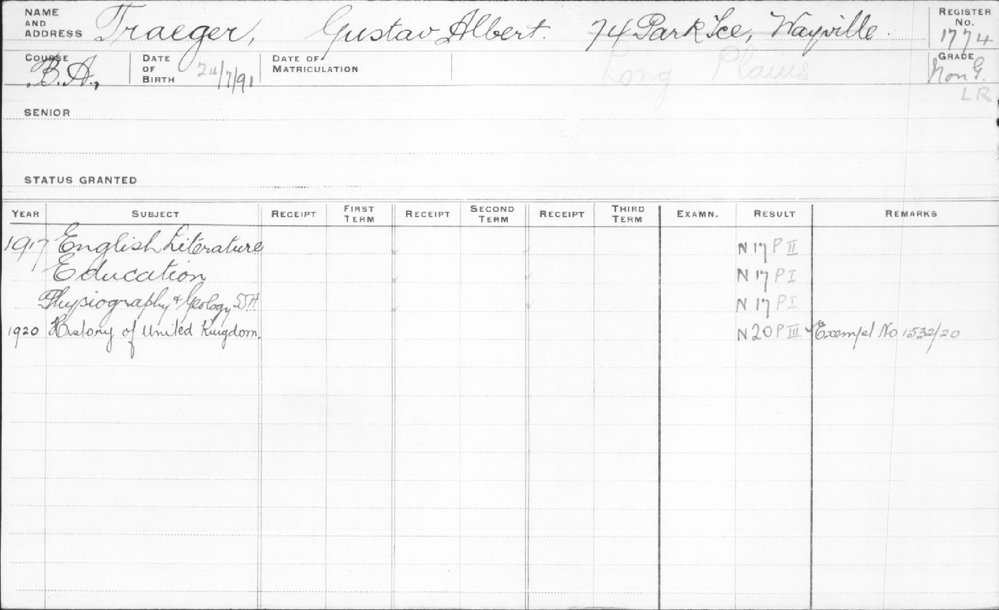 NAME AND ADDRESS Traeger, Gustav Albert. 74 Park Tce, Wayville.
REGISTER No. 1774
COURSE B.A., DATE OF BIRTH 24/7/91 DATE OF MATRICULATION Long Plains
GRADE Non G.
LR
SENIOR
STATUS GRANTED
YEAR SUBJECT RECEIPT FIRST TERM RECEIPT SECOND TERM RECEIPT THIRD TERM EXAMN. RESULT REMARKS
1917 English Literature N 17 P II
Education N 17 P I
Physiography & Geology N 17 P I
1920 History of United Kingdom. N 20 P III Exempt No 1532/20